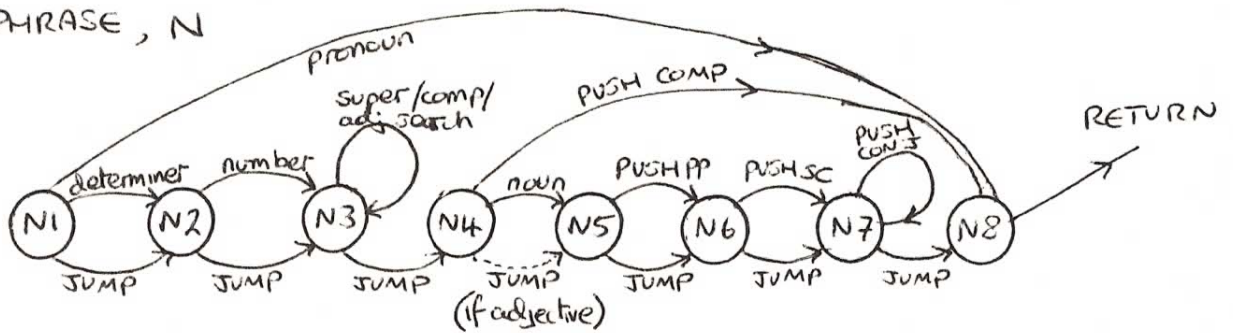 PHRASE, N
pronoun
PUSH COMP
super/comp/
adj search
RETURN
PUSH
CONJ
determiner
number
noun
PUSH PP
PUSH SC
N1
N2
N3
N4
N5
N6
N7
N8
JUMP
JUMP
JUMP
JUMP
(if adjective)
JUMP
JUMP
JUMP